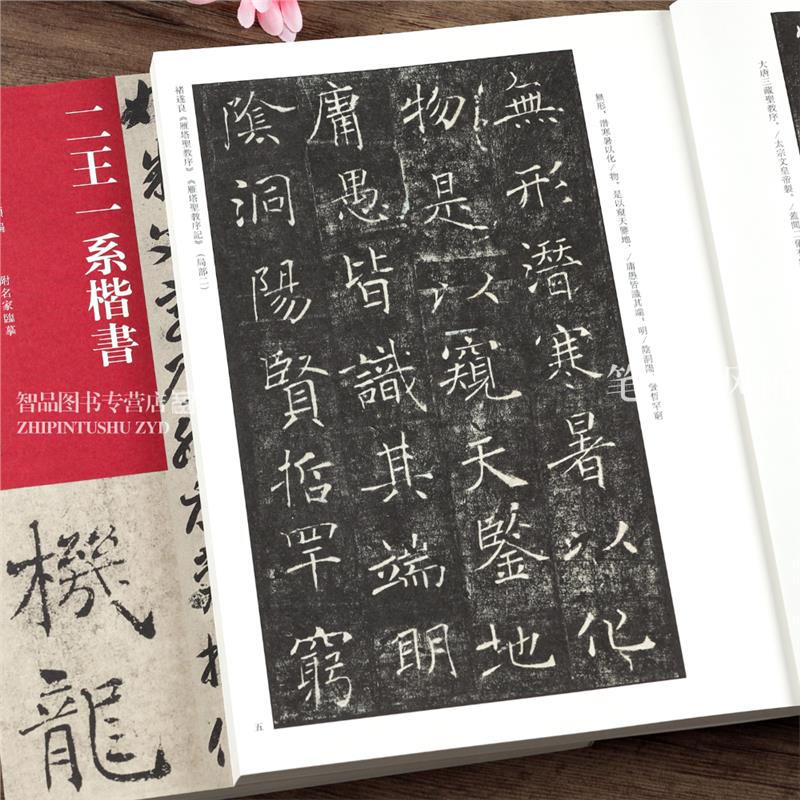 二王一系楷書
附名家臨摹
智品图书专营店
ZHIPINTUSHU ZYD
機龍
大唐三藏聖教序。/太宗文皇帝製。/蓋聞二儀
無形，潛寒暑以化/物。是以窺天鑒地，/庸愚皆識其端；明/陰洞陽，賢哲罕窮
無形潛寒暑以化
物是以窺天鑒地
庸愚皆識其端明
陰洞陽賢哲罕窮
褚遂良《雁塔聖教序》《雁塔聖教序記》（局部二）
五